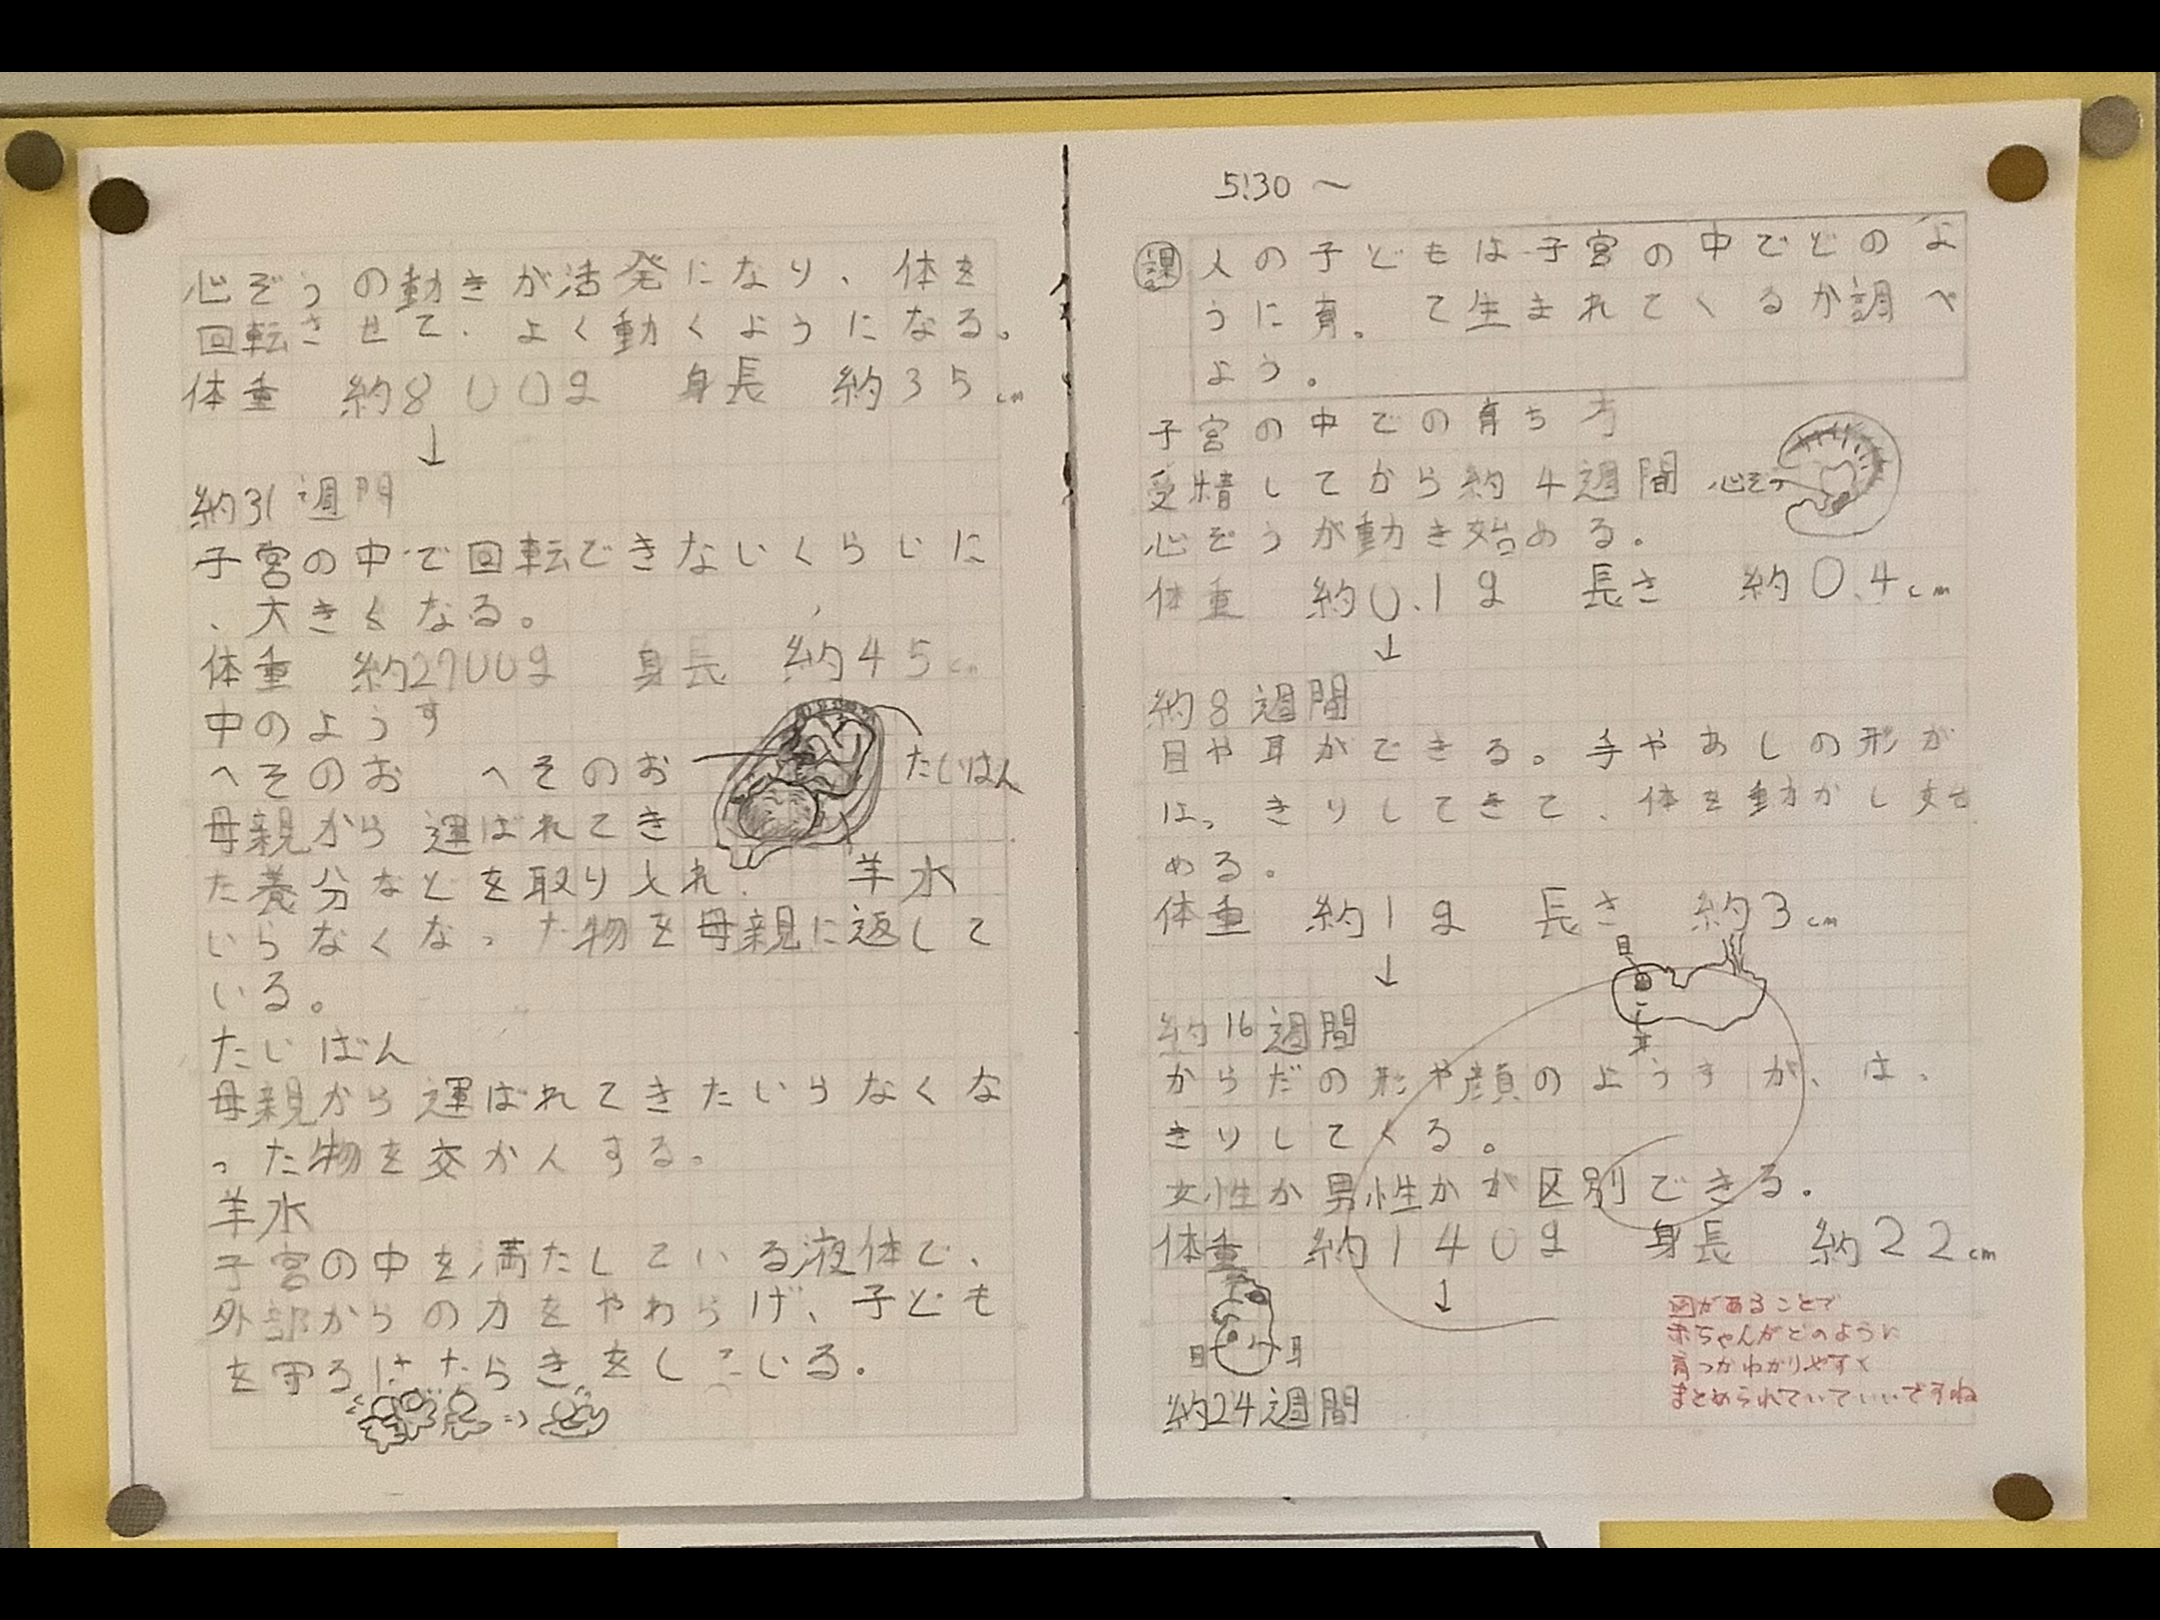 5:30〜
課 人の子どもは子宮の中でどのよ
うに育って生まれてくるか調べ
よう。
子宮の中での育ち方
受精してから約4週間
心ぞう
心ぞうが動き始める。
体重 約0.1g 長さ 約0.4cm
↓
約8週間
目や耳ができる。手やあしの形が
はっきりしてきて、体を動かし始
める。
体重 約1g 長さ 約3cm
↓
目
約16週間
からだの形や顔のようすが、はっ
きりしてくる。
女性か男性かが区別できる。
体重 約140g 身長 約22cm
↓
目 耳
約24週間
図があることで
赤ちゃんがどのように
育つかわかりやすく
まとめられていていいですね
心ぞうの動きが活発になり、体を
回転させて、よく動くようになる。
体重 約800g 身長 約35cm
↓
約31週間
子宮の中で回転できないくらいに
、大きくなる。
体重 約2700g 身長 約45cm
中のようす
へそのお へそのお
たいばん
母親から運ばれてき
た養分などを取り入れ、 羊水
いらなくなった物を母親に返して
いる。
たいばん
母親から運ばれてきたいらなくな
った物を交かんする。
羊水
子宮の中を満たしている液体で、
外部からの力をやわらげ、子ども
を守るはたらきをしている。